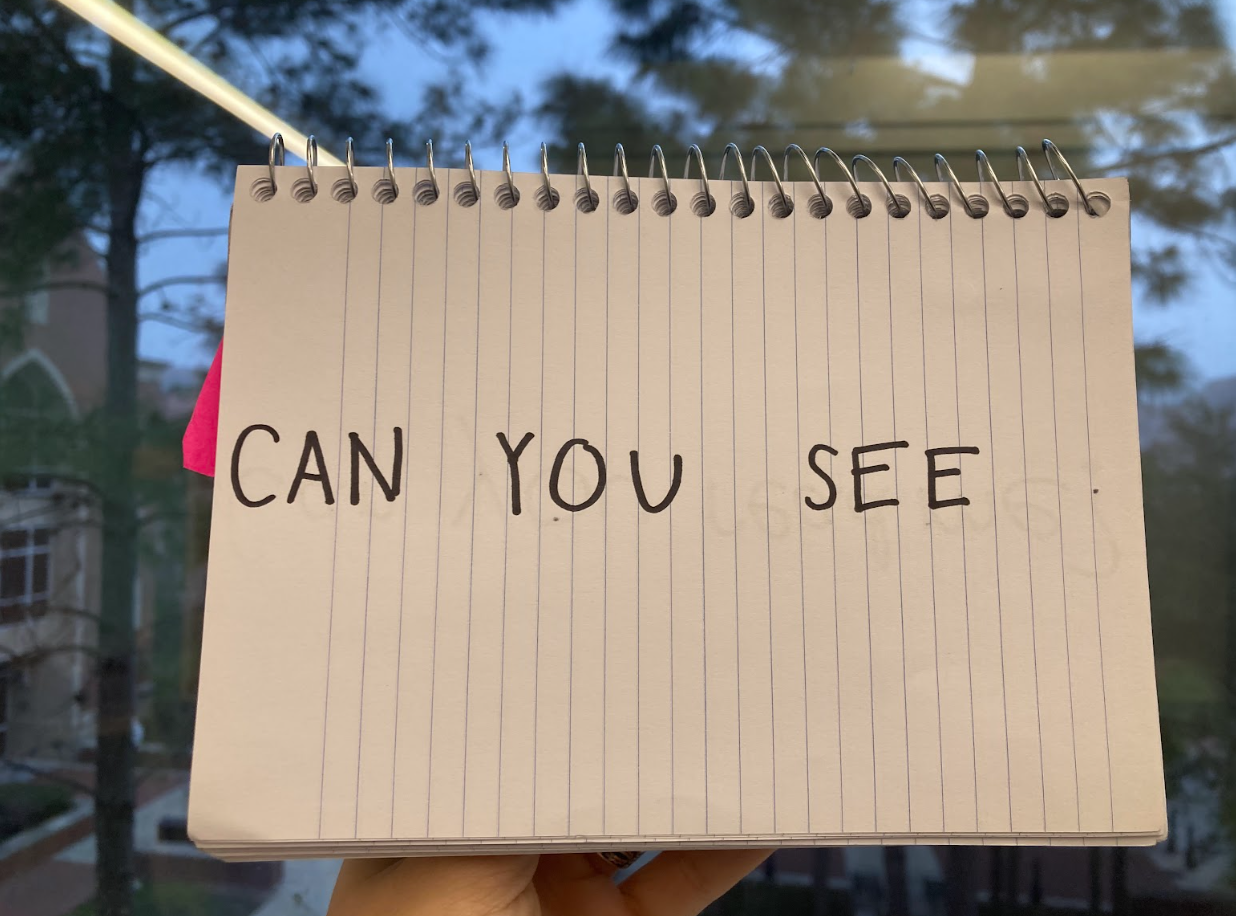 CAN YOU SEE